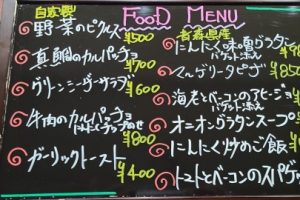 FOOD MENU
自家製
野菜のピクルス
¥500
真鯛のカルパッチョ
¥700
グリーンシーザーサラダ
¥600
牛肉のカルパッチョ
にんにくチップのせ
¥800
ガーリックトースト
¥400
青森県産
にんにく味噌グラタン
バゲット添え
マルゲリータピザ
¥850
海老とベーコンのアヒージョ
バゲット添え
オニオングラタンスープ
にんにく炒めご飯
トマトとベーコンのスパゲッ